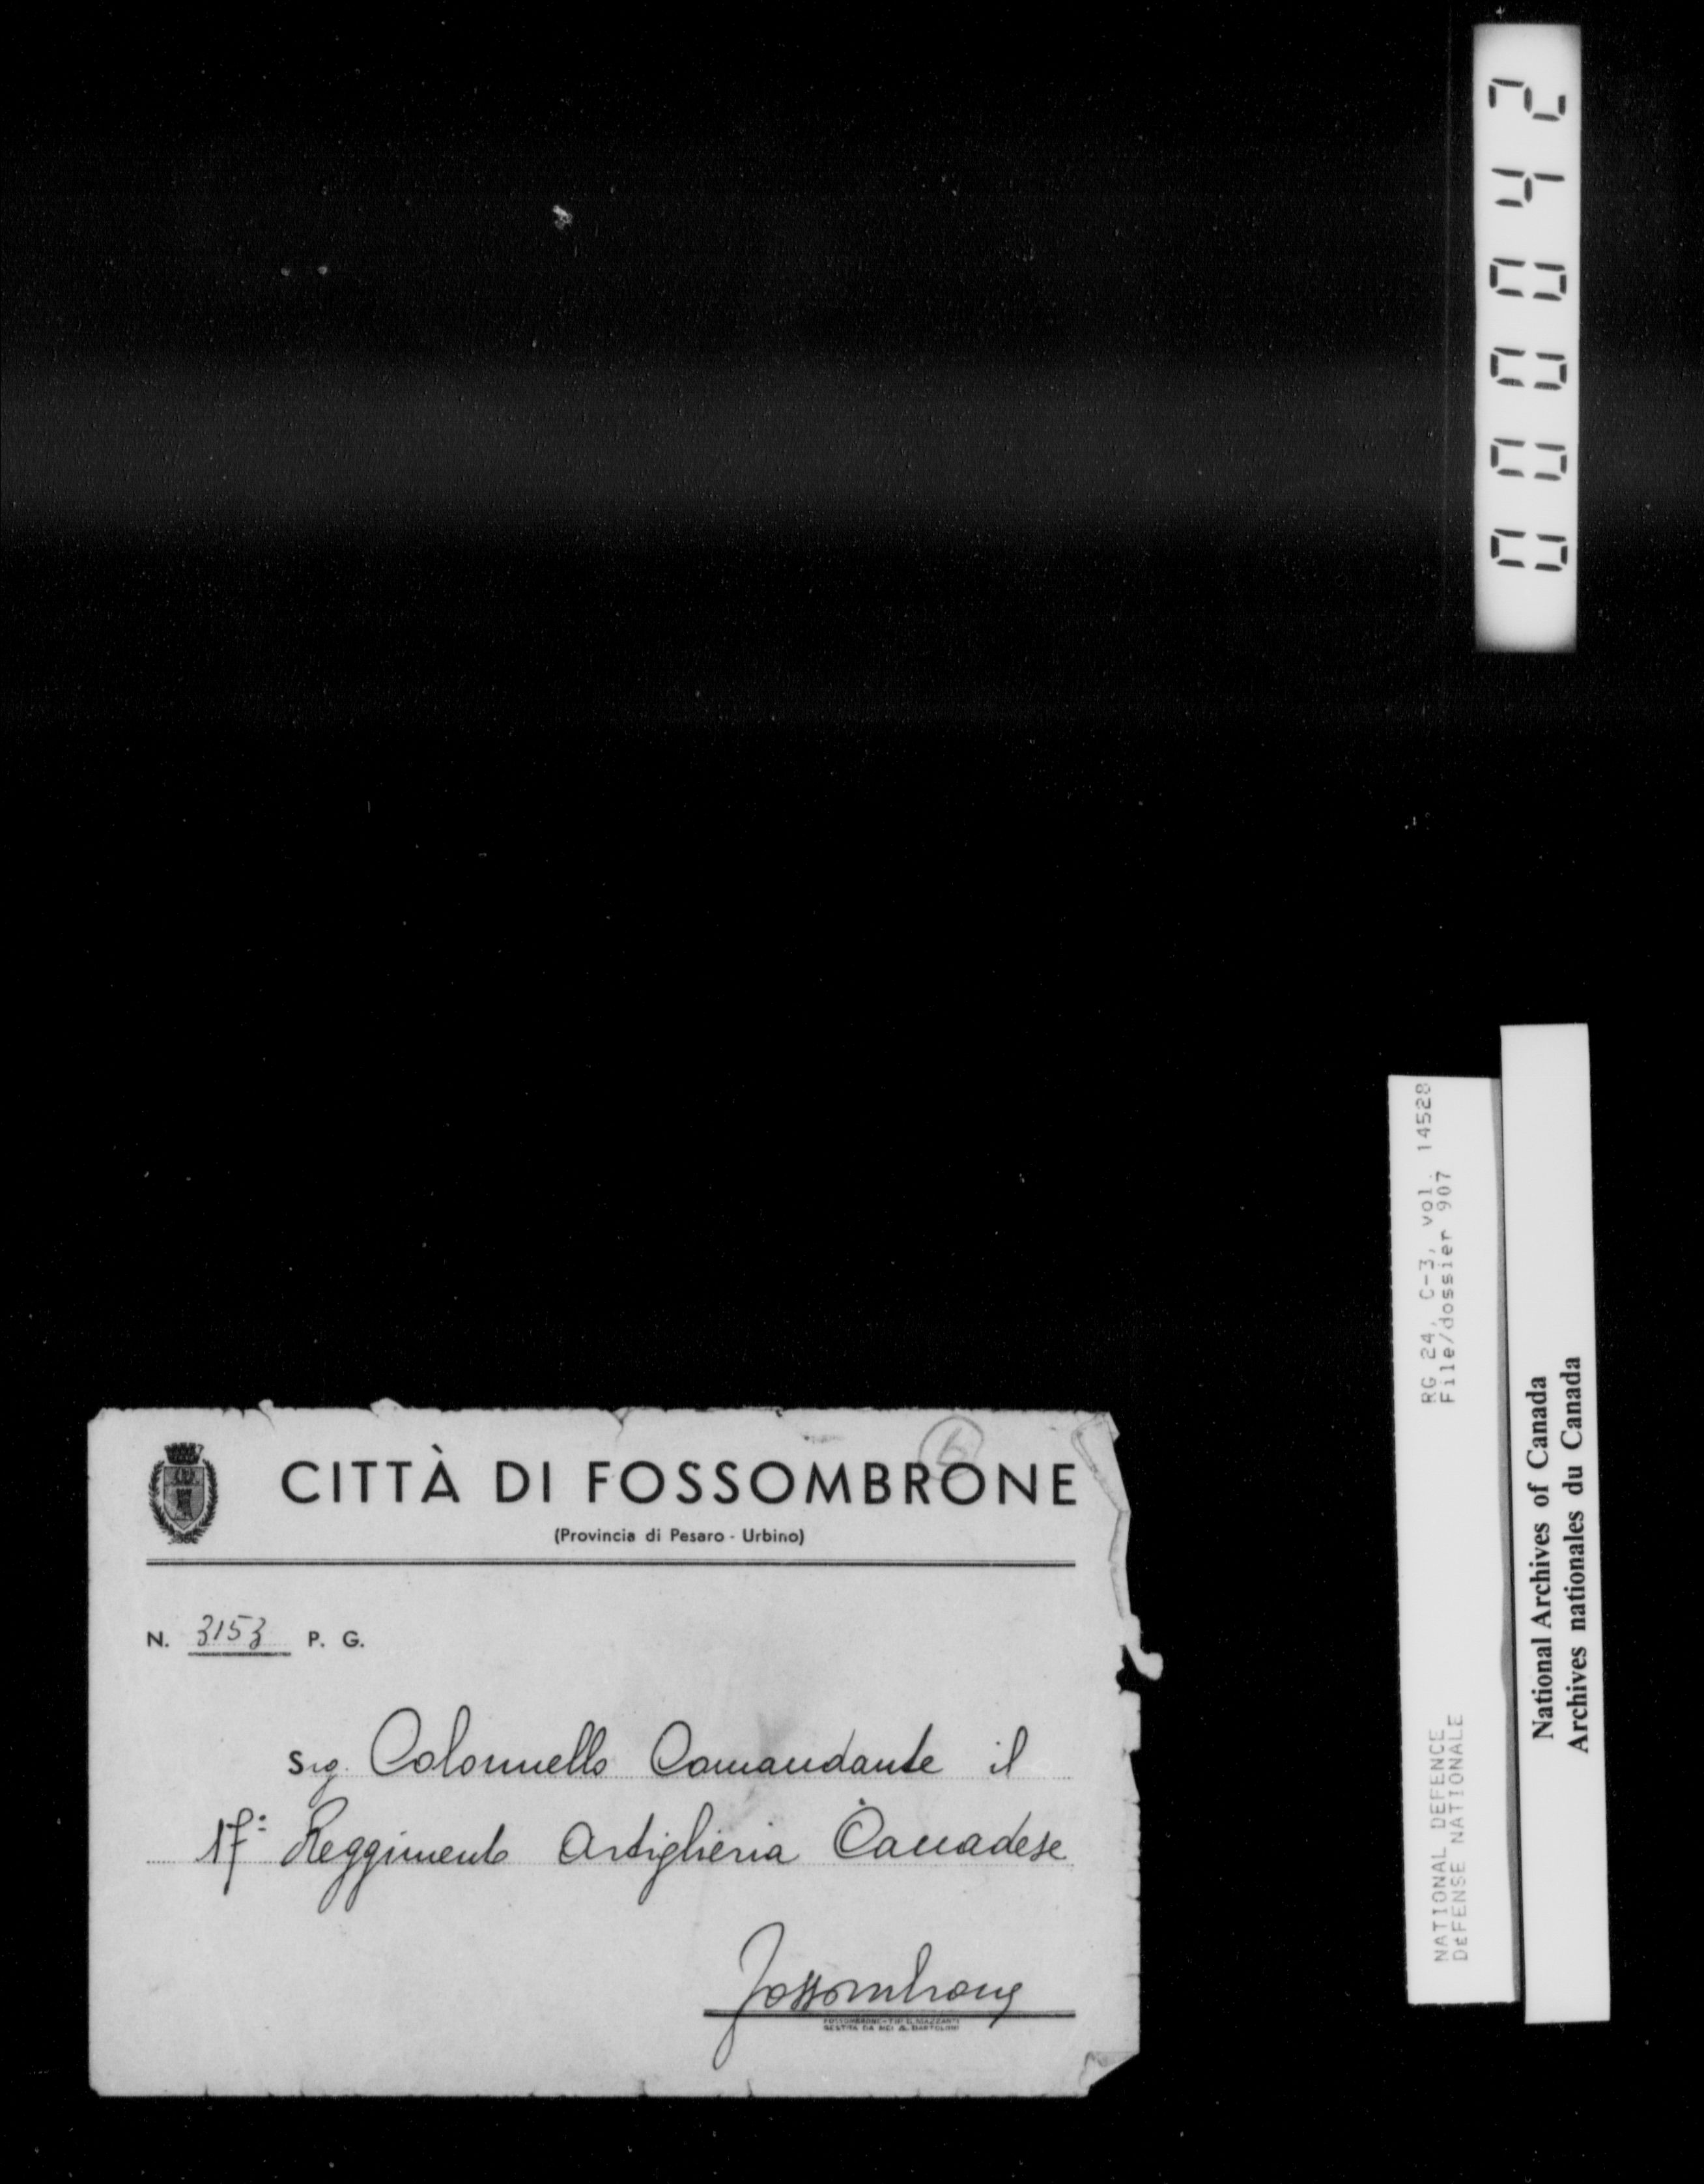 000042
CITTÀ DI FOSSOMBRONE
(Provincia di Pesaro - Urbino)
N. 3153 P. G.
Sig. Colonnello Comandante il
17º Reggimento Artiglieria Canadese
Fossombrone
RG 24, C-3, vol. 14528
File/dossier 907
NATIONAL DEFENCE
DÉFENSE NATIONALE
National Archives of Canada
Archives nationales du Canada